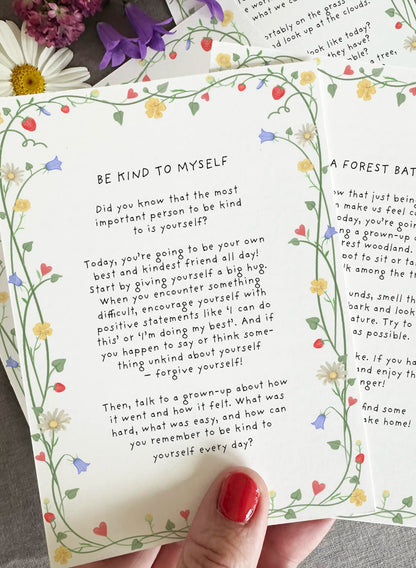 BE KIND TO MYSELF
Did you know that the most
important person to be kind
to is yourself?
Today, you're going to be your own
best and kindest friend all day!
Start by giving yourself a big hug.
When you encounter something
difficult, encourage yourself with
positive statements like 'I can do
this' or 'I'm doing my best'. And if
you happen to say or think some-
thing unkind about yourself
– forgive yourself!
Then, talk to a grown-up about how
it went and how it felt. What was
hard, what was easy, and how can
you remember to be kind to
yourself every day?
A FOREST BAT
that just being
make us feel
today, you're goin
a grown-up
rest woodland.
oot to sit or
k among the t
unds, smell th
bark and look
ature. Try to
as possible.
ke. If you ha
nd enjoy th
nger!
find some
ake home!
what we c
ortably on the gras
nd look up at the clouds.
look like today?
they have?
a tree,